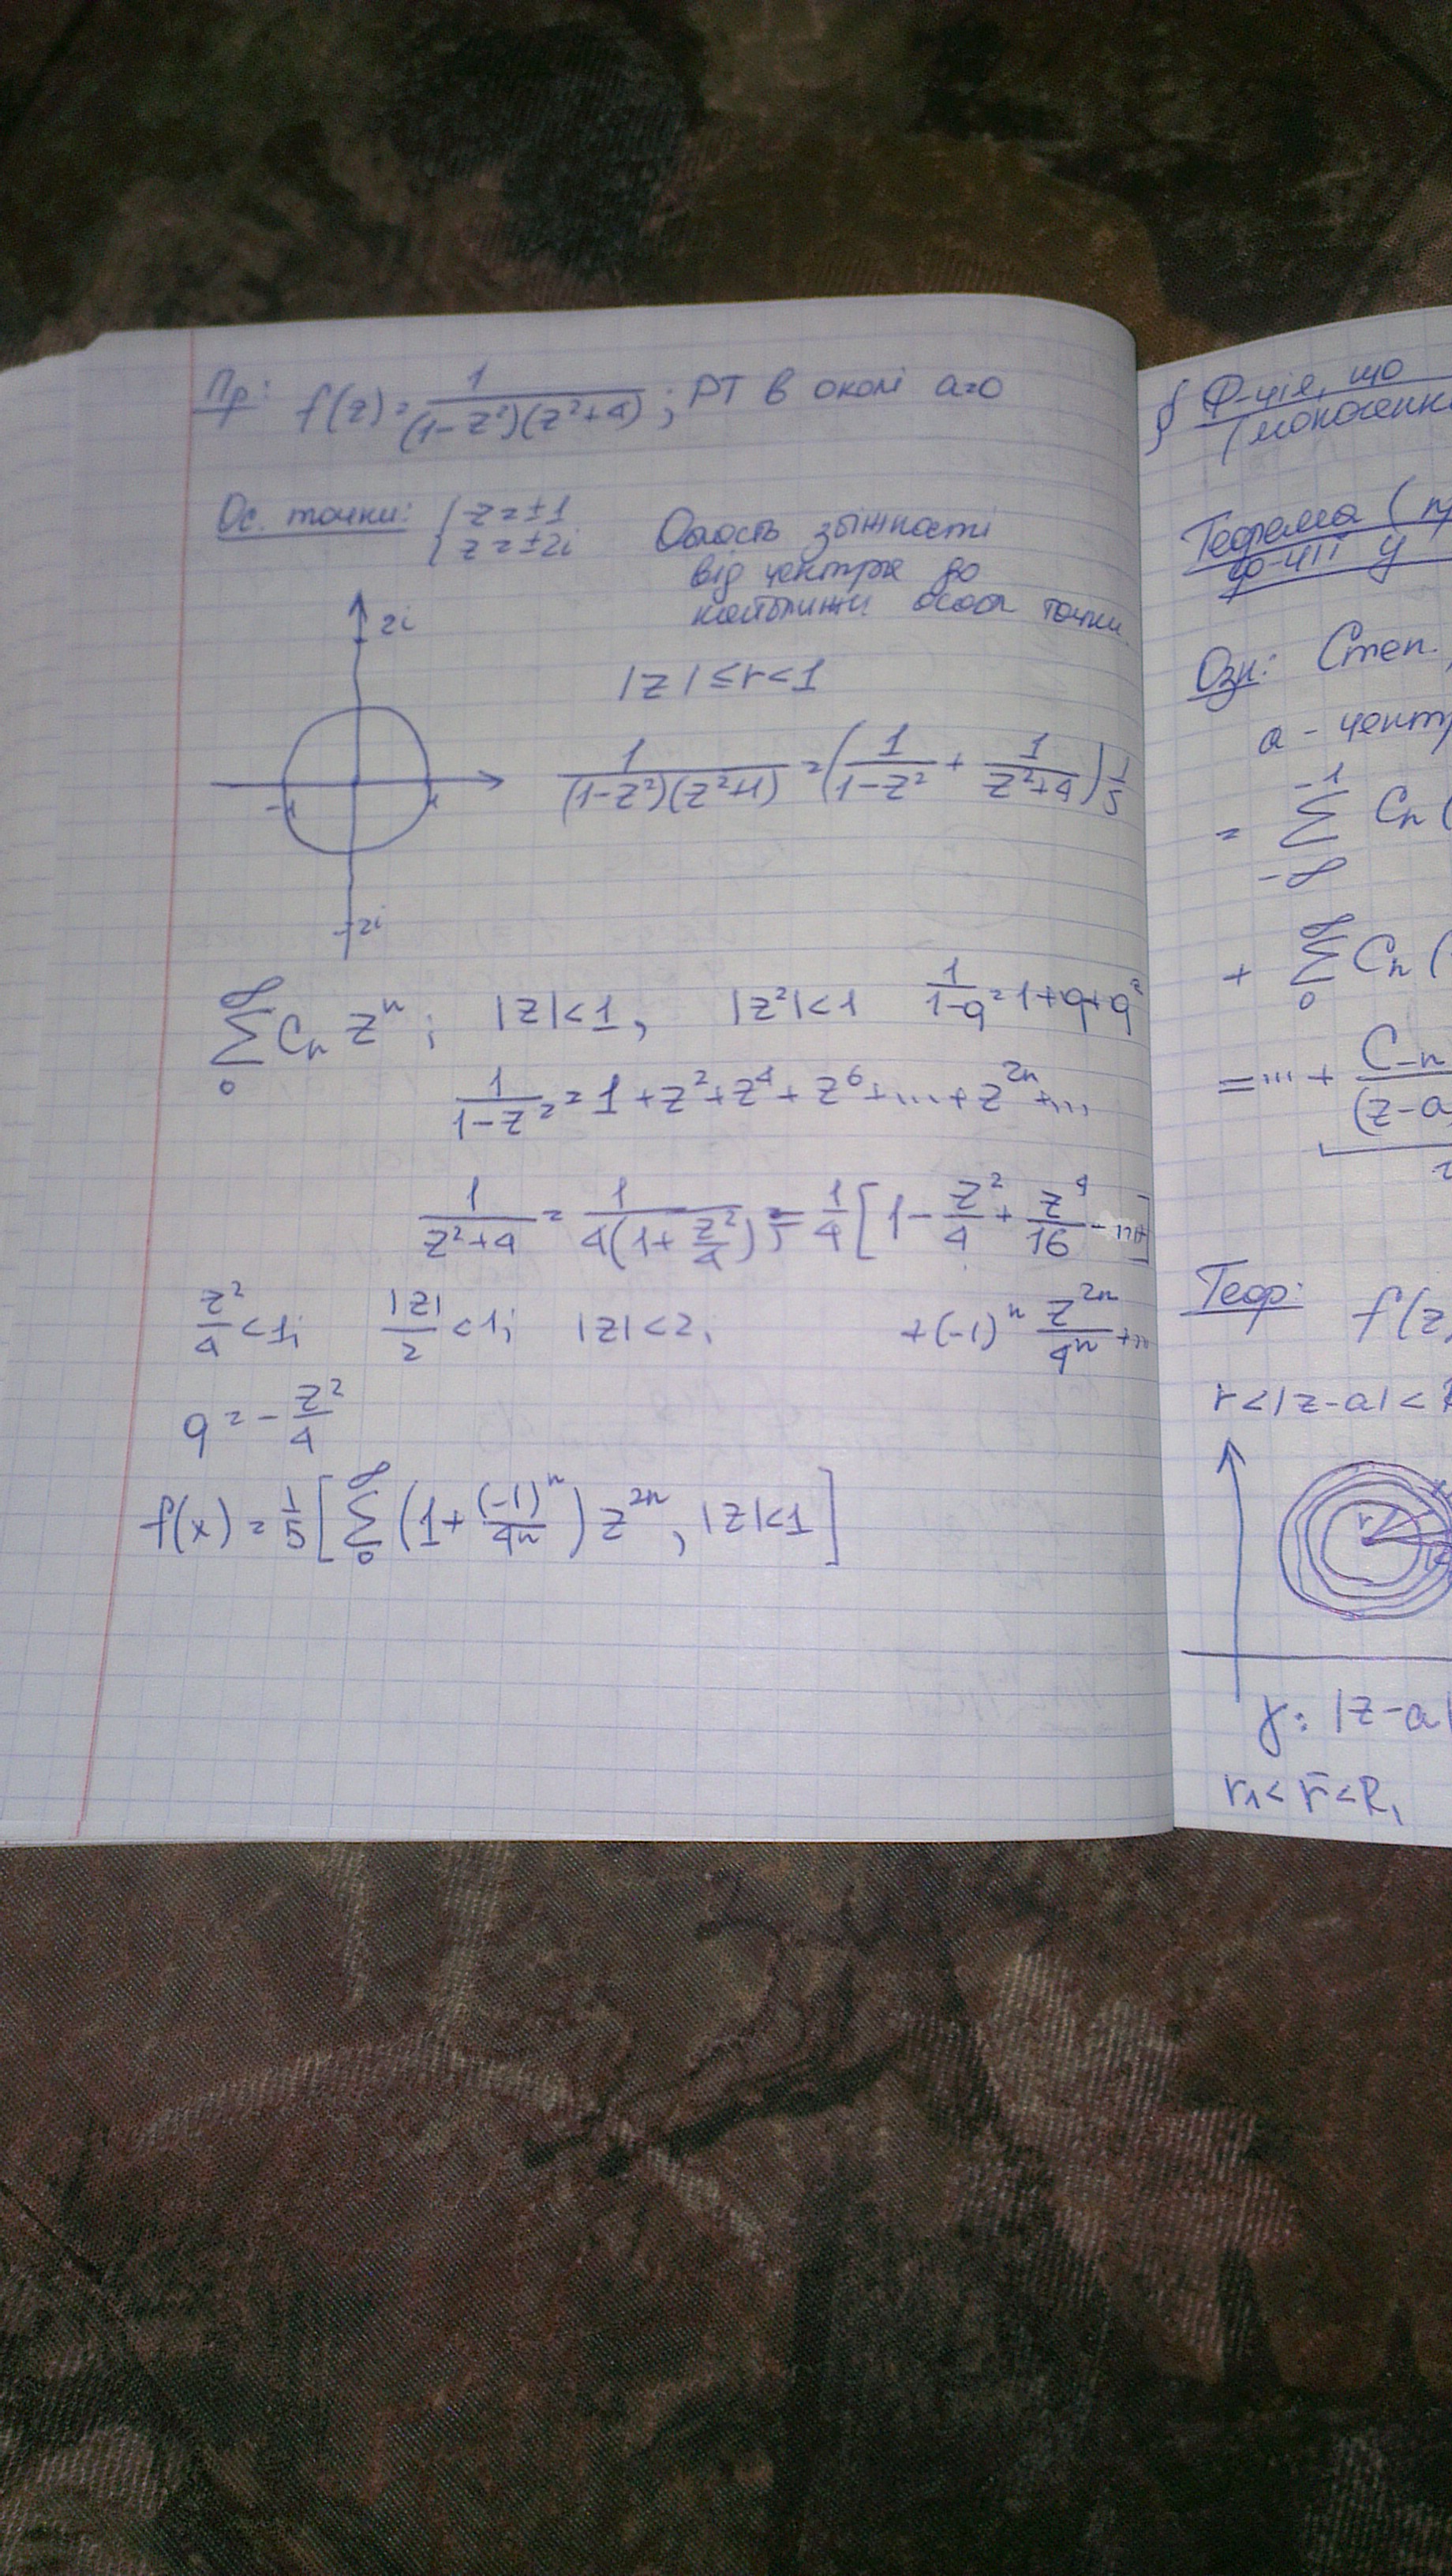 Пр: f(z) = 1/((1-z²)(z²+4)); РТ в околі a=0
Ос. точки: { z=±1
z=±2i
Оласть збіжності
від центра до
найближч особл точки.
2i
|z| ≤ r < 1
1/((1-z²)(z²+1)) = (1/(1-z²) + 1/(z²+4)) 1/5
-1 1
-2i
∑₀^∞ Cₙ zⁿ; |z|<1, |z²|<1 1/(1-q) = 1+q+q²
1/(1-z²) = 1+z²+z⁴+z⁶+...+z²ⁿ+...
1/(z²+4) = 1/(4(1+z²/4)) = 1/4 [1 - z²/4 + z⁴/16 - ...+]
z²/4 < 1; |z|/2 < 1; |z| < 2, +(-1)ⁿ z²ⁿ/4ⁿ + ...
q = - z²/4
f(x) = 1/5 [∑₀^∞ (1 + (-1)ⁿ/4ⁿ) z²ⁿ, |z|<1]
§ Ф-ція, що
Теорема (
ф-ції у
Озн: Степ.
a - центр
= ∑_{-∞}^{-1} Cₙ (
+ ∑₀^∞ Cₙ (
= ... + C₋ₙ/(z-a)
Теор: f(z)
r < |z-a| < R
r
γ: |z-a|
r₁ < r̄ < R₁